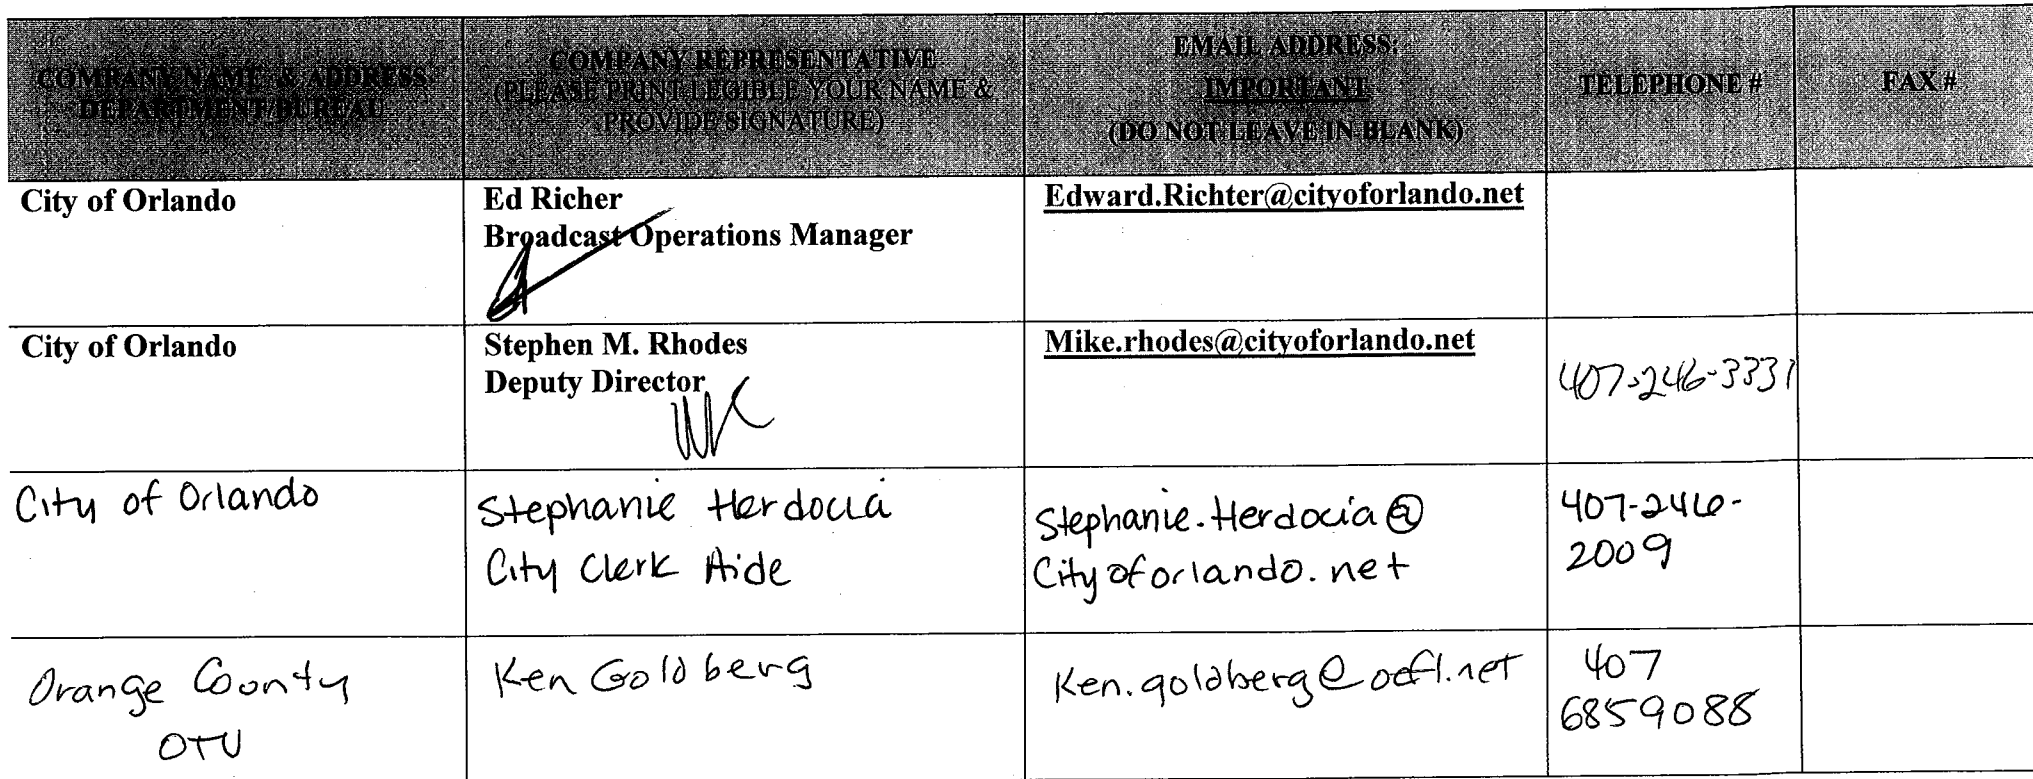 COMPANY NAME & ADDRESS
DEPARTMENT/BUREAU
COMPANY REPRESENTATIVE
(PLEASE PRINT LEGIBLE YOUR NAME &
PROVIDE SIGNATURE)
EMAIL ADDRESS:
IMPORTANT
(DO NOT LEAVE IN BLANK)
TELEPHONE #
FAX #
City of Orlando
Ed Richer
Broadcast Operations Manager
Edward.Richter@cityoforlando.net
City of Orlando
Stephen M. Rhodes
Deputy Director
Mike.rhodes@cityoforlando.net
407-246-3331
City of Orlando
Stephanie Herdocia
City Clerk Aide
Stephanie.Herdocia@
Cityoforlando.net
407-246-
2009
Orange County
OTV
Ken Goldberg
Ken.goldberg@ocfl.net
407
6859088